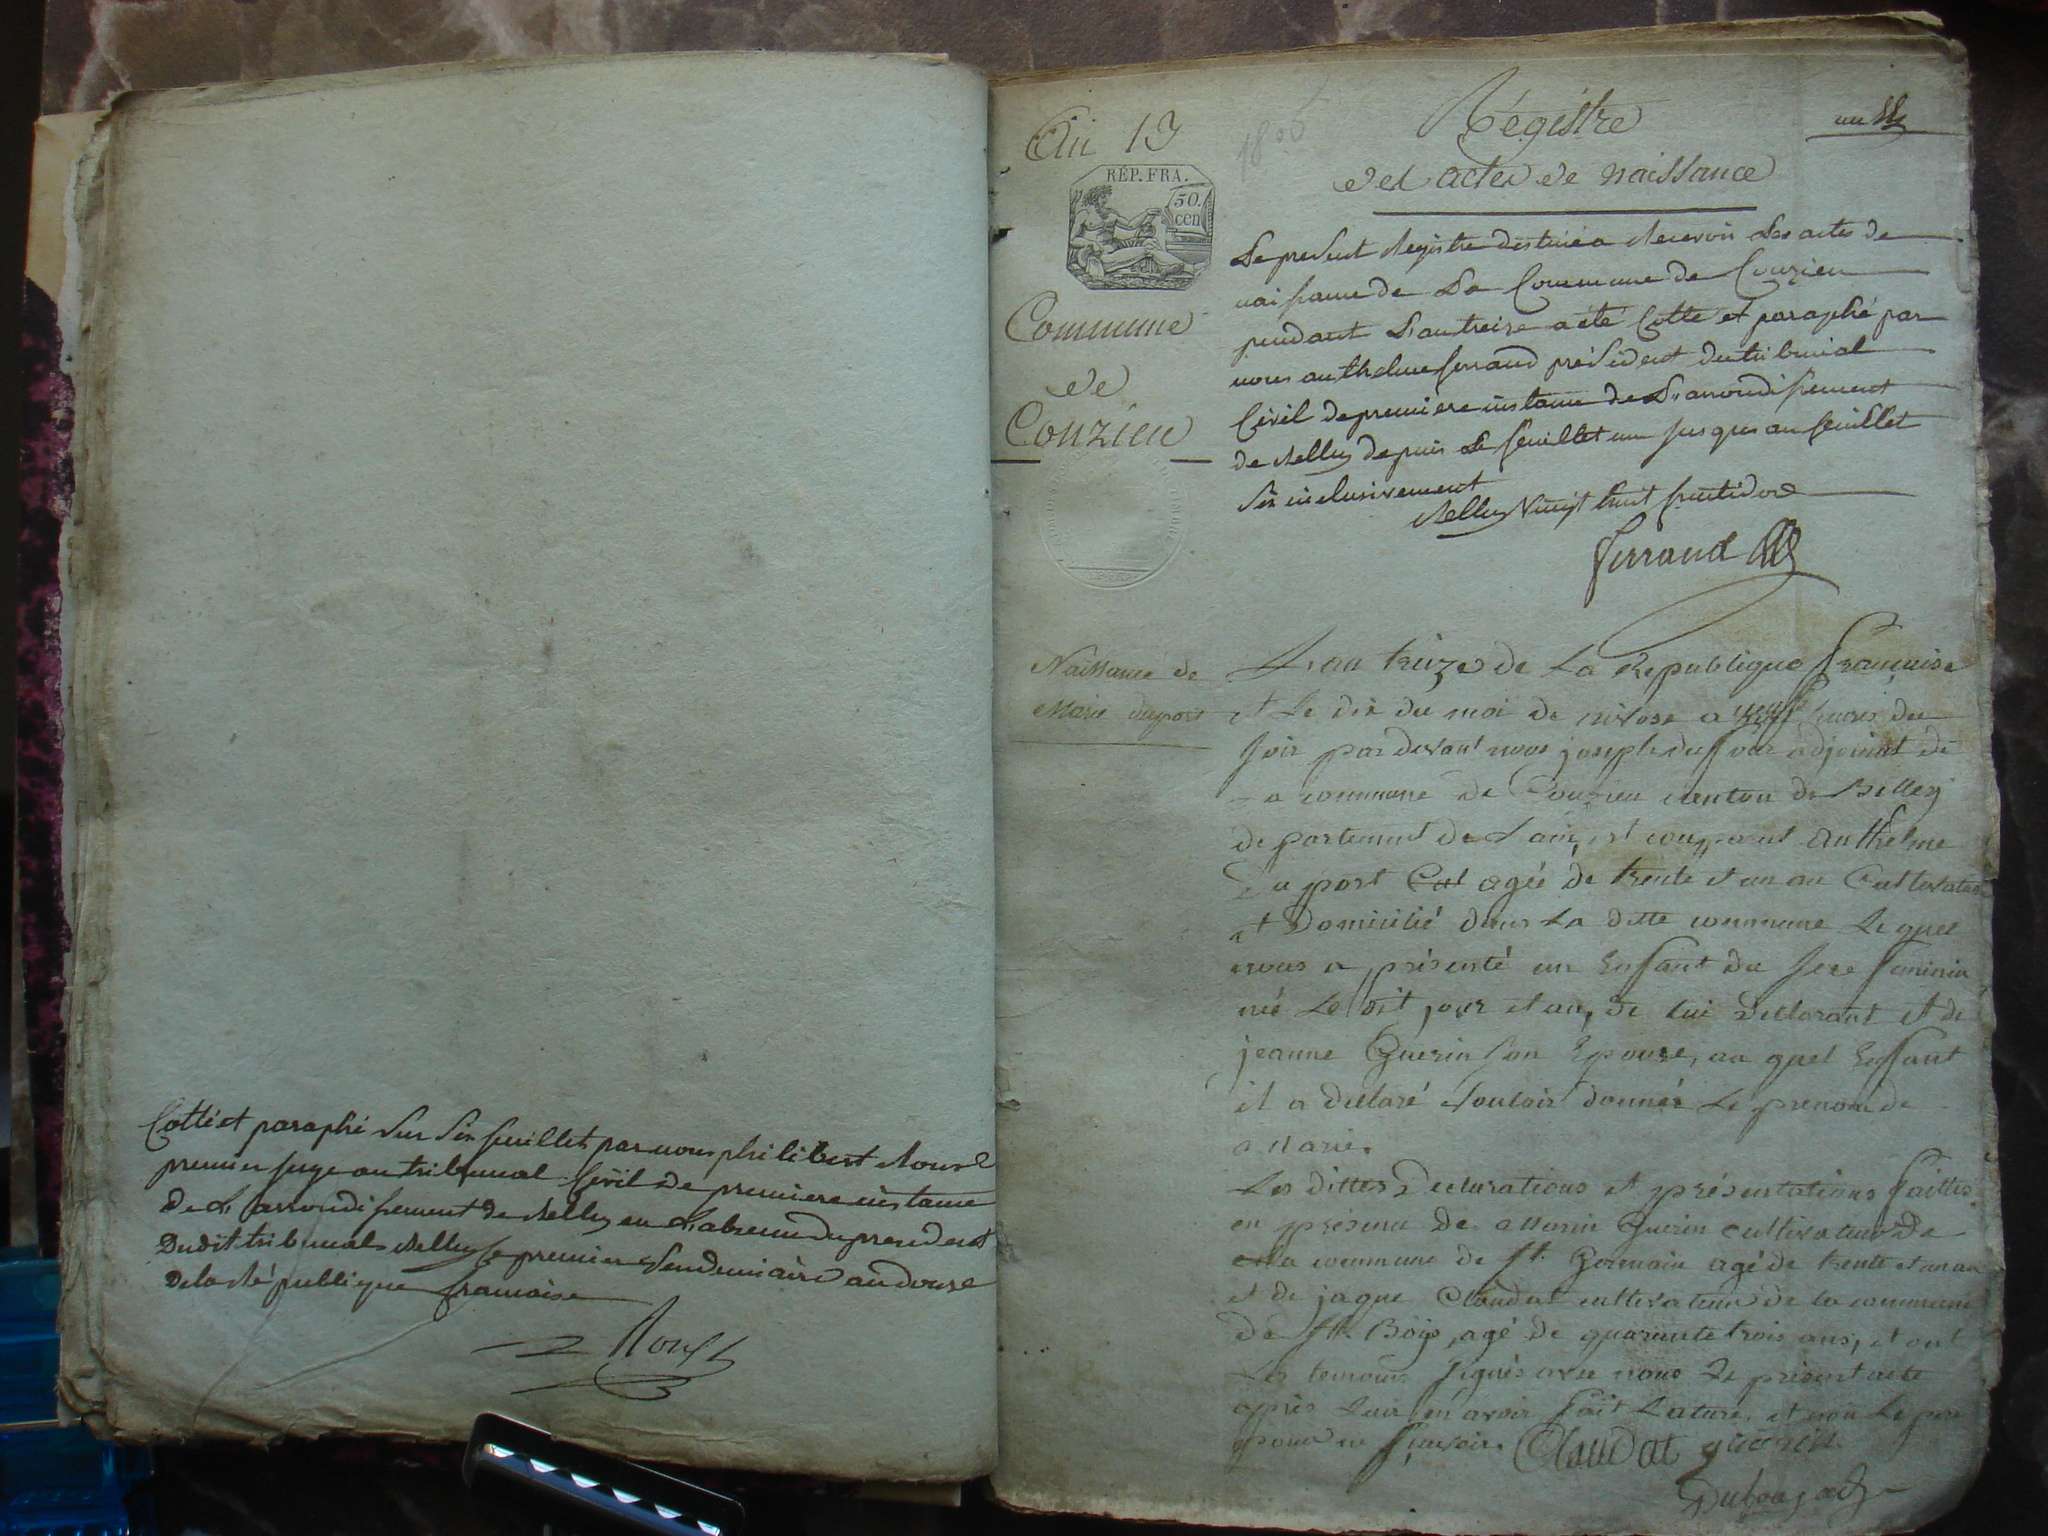 Cotté et paraphé sur six feuillets par nous philibert Roux
premier juge au tribunal Civil de premiere instance
De L'arrondissement de Belley en L'absence du president
Dudit tribunal Belley le premier Vendemiaire an douze
De la République francaise
Roux
An 13
1805
Régistre
des actes de naissance
RÉP. FRA.
50.
cen
Commune
de
Couzieu
Le present Registre destiné a Recevoir Les actes de
naissance de La Commune de Couzieu
pendant L'an treize a été Cotté et paraphé par
nous anthelme ferrand président du tribunal
Civil de premiere instance de L'arrondissement
de Belley depuis Le feuillet un jusques au feuillet
six inclusivement
Belley Vingt huit fructidor
ferrand
Naissance de
Marie duport
L'an treize de La Republique française
et Le dix du moi de nivose a heures du
soir par devant nous joseph adjoint de
La commune de Couzieu canton de Belley
departement de L'ain, est comparut Anthelme
Duport agée de trente et un an Cultivateur
et Domicilié dans La ditte commune Lequel
nous a présenté un Enfant du sexe feminin
née Le dit jour et an, de lui Déclarant et de
jeanne Guerin son Epouse, au quel Enfant
il a déclaré vouloir donner Le prenom de
Marie.
Les dittes Déclarations et présentations faittes
en présence de Guerin cultivateur de
la commune de St. Germain agé de trente et un an
et de jaque Claudat cultivateur de la commune
de St. Bois, agé de quarente trois ans, et ont
Les temoins signés avec nous Le présent acte
après Leur en avoir fait Lature, et non Le pere
pour ne sçavoir. Claudat guerin